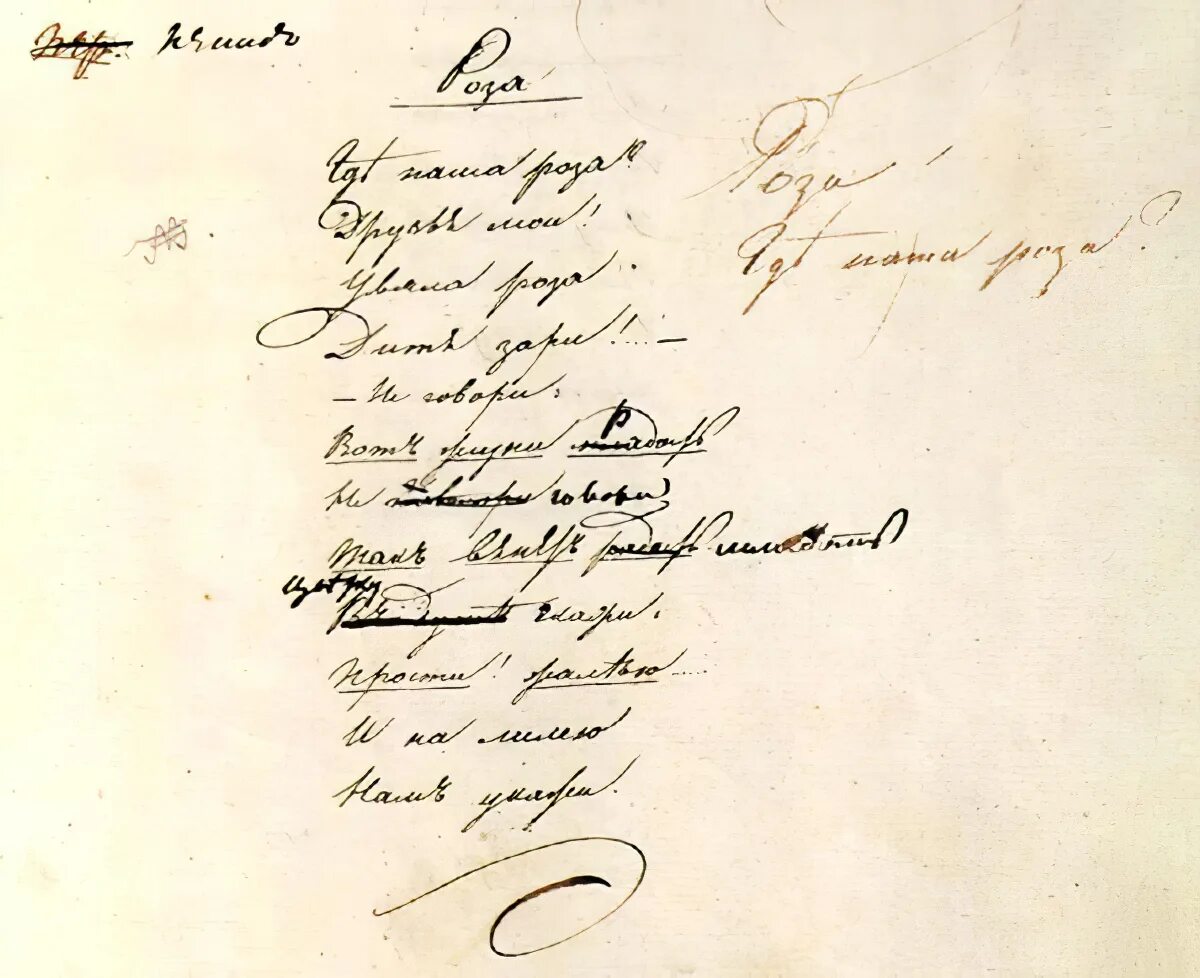 Роза
Гдѣ наша роза?
Друзья мои!
Увяла роза.
Дитя зари!... —
— Не говори:
Вотъ жизни радость
Не говори
Такъ вянетъ радость младость
цвѣтку
Въ душѣ скажи:
Прости! жалѣю....
И на лилею
Намъ укажи.
Роза
Гдѣ наша роза?